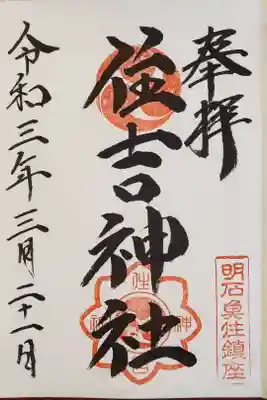 奉拝
明石魚住鎮座
住吉神社
住吉神社
令和三年三月二十一日